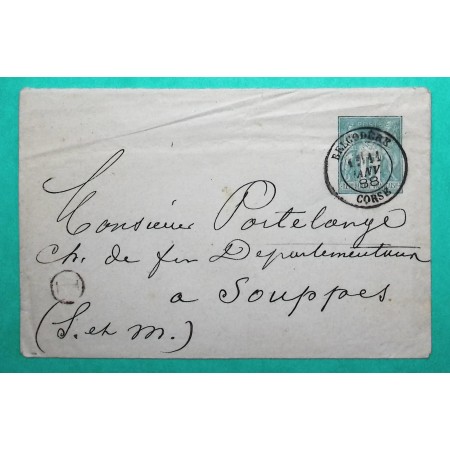 BELGODÈRE
11
JANV
88
CORSE
Monsieur Portelange
Ch. de fer Departementaux
a Souppes
(S. et M.)